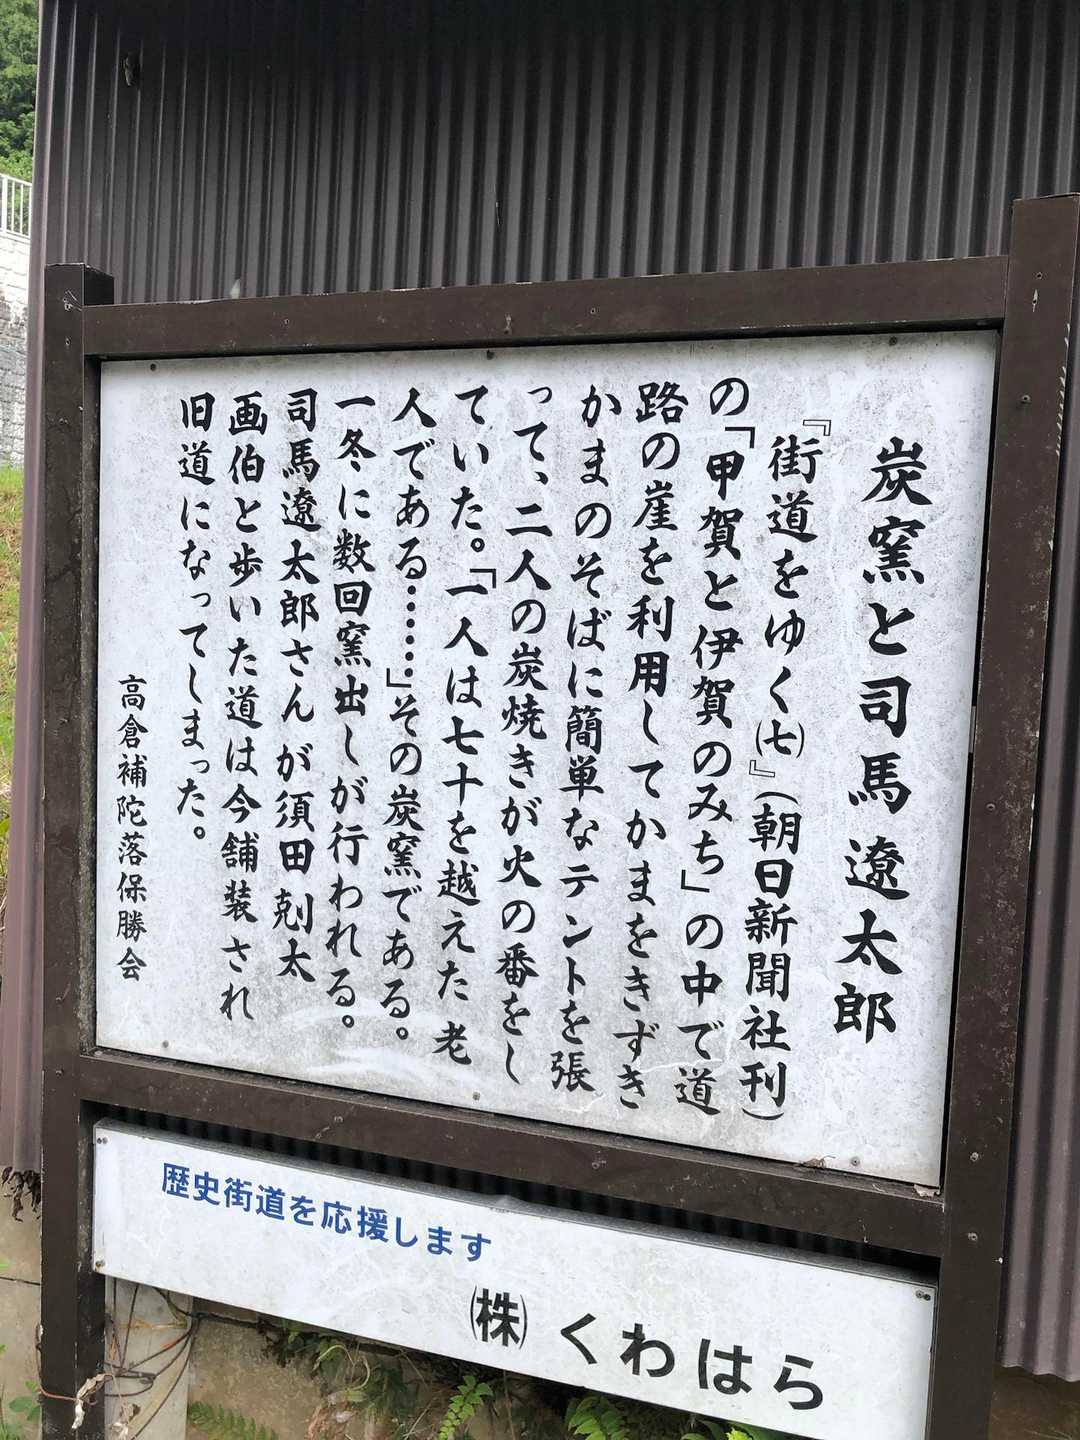 炭窯と司馬遼太郎
『街道をゆく㈦』(朝日新聞社刊)
の「甲賀と伊賀のみち」の中で道
路の崖を利用してかまをきずき
かまのそばに簡単なテントを張
って、二人の炭焼きが火の番をし
ていた。「一人は七十を越えた老
人である……」その炭窯である。
一冬に数回窯出しが行われる。
司馬遼太郎さんが須田剋太
画伯と歩いた道は今舗装され
旧道になってしまった。
高倉補陀落保勝会
歴史街道を応援します
㈱くわはら